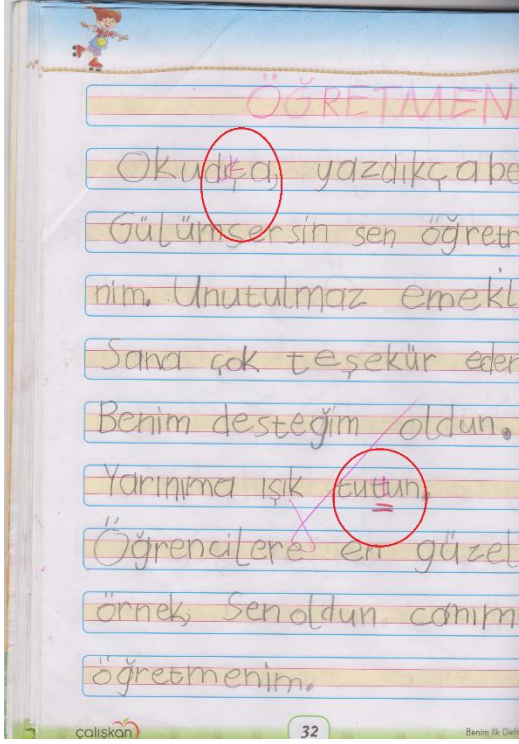 ÖĞRETMEN
Okudkça, yazdıkça be
Gülümsersin sen öğretm
nim. Unutulmaz emekl
Sana çok teşekür eder
Benim desteğim oldun.
Yarınıma ışık tuttun,
Öğrencilere en güzel
örnek, Sen oldun canım
öğretmenim.
çalışkan
32
Benim İlk Deft